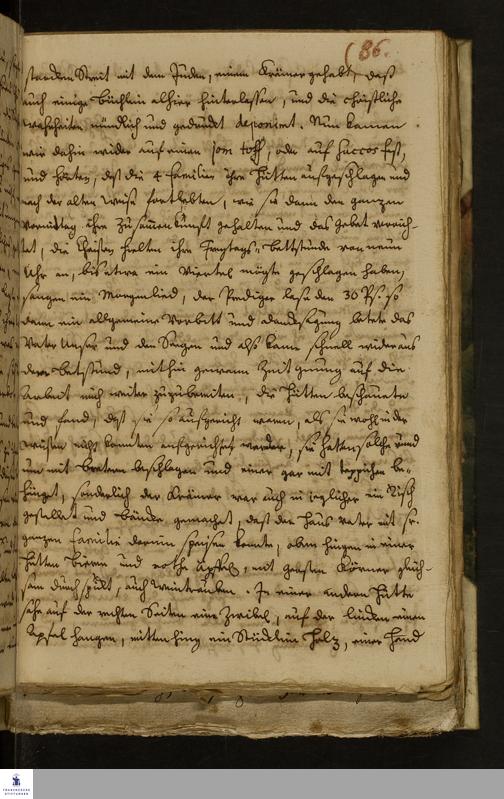 (86.
standen Streit mit dem Juden, einem Krämer gehabt, daß
auch einige Büchlein alhier hinterlassen, und die christliche
Wahrheiten mündlich und gedruckt deponirt. Nun kamen
wir dahin wider auf einen jom toff, oder auf Succos fest,
und hörten, daß die 4 Familien ihre Hütten aufgeschlagen und
nach der alten Weise fortlebten, wie sie dann den ganzen
Vormittag ihre Zusammenkunft gehalten und das Gebet verrich-
tet, die Christen hielten ihre Freytags-Bettstunde von neun
Uhr an, bis etwa ein Viertel mögte geschlagen haben,
sangen ein Morgenlied, der Prediger lase den 30 Ps. so
dann ein allgemeine Vorbitt und Danksagung betete das
Vater Unser und den Seegen und also kame schnell wider aus
der Betstund, mithin genram Zeit genug auf die
Arbeit mich weiter zuzubereiten, die Hütten beschauete
und fand, daß sie so aufgericht waren, als sie wohl in der
Wüsten nicht konnten aufgerichtet werden, sie hatten solche rund
um mit Bretern beschlagen und einer gar mit Teppichen be-
hänget, sonderlich der Krämer war auch in jeglicher ein Tisch
gestellet und Bänke gemachet, daß der Haus Vater mit sr.
ganzen Familie darinn speisen konte, oben hingen in einer
Hütten Birnen und rothe Äpffel, mit Gersten Körner gleich-
sam durchspickt, auch Weintrauben. In einer andern Hütte
sahe auf der rechten Seiten eine Zwibel, auf der linken einen
Apfel hangen, mitten hing ein Stücklein Holz, einer Hand
FRANCKESCHE
STIFTUNGEN